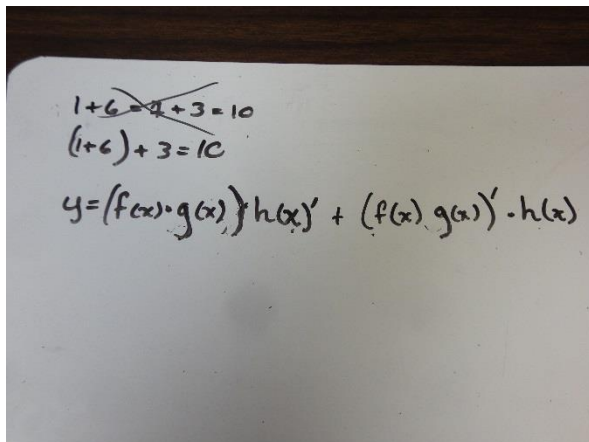 1+6=7+3=10
(1+6)+3=10
y=(f(x)·g(x))·h(x)' + (f(x) g(x))'·h(x)